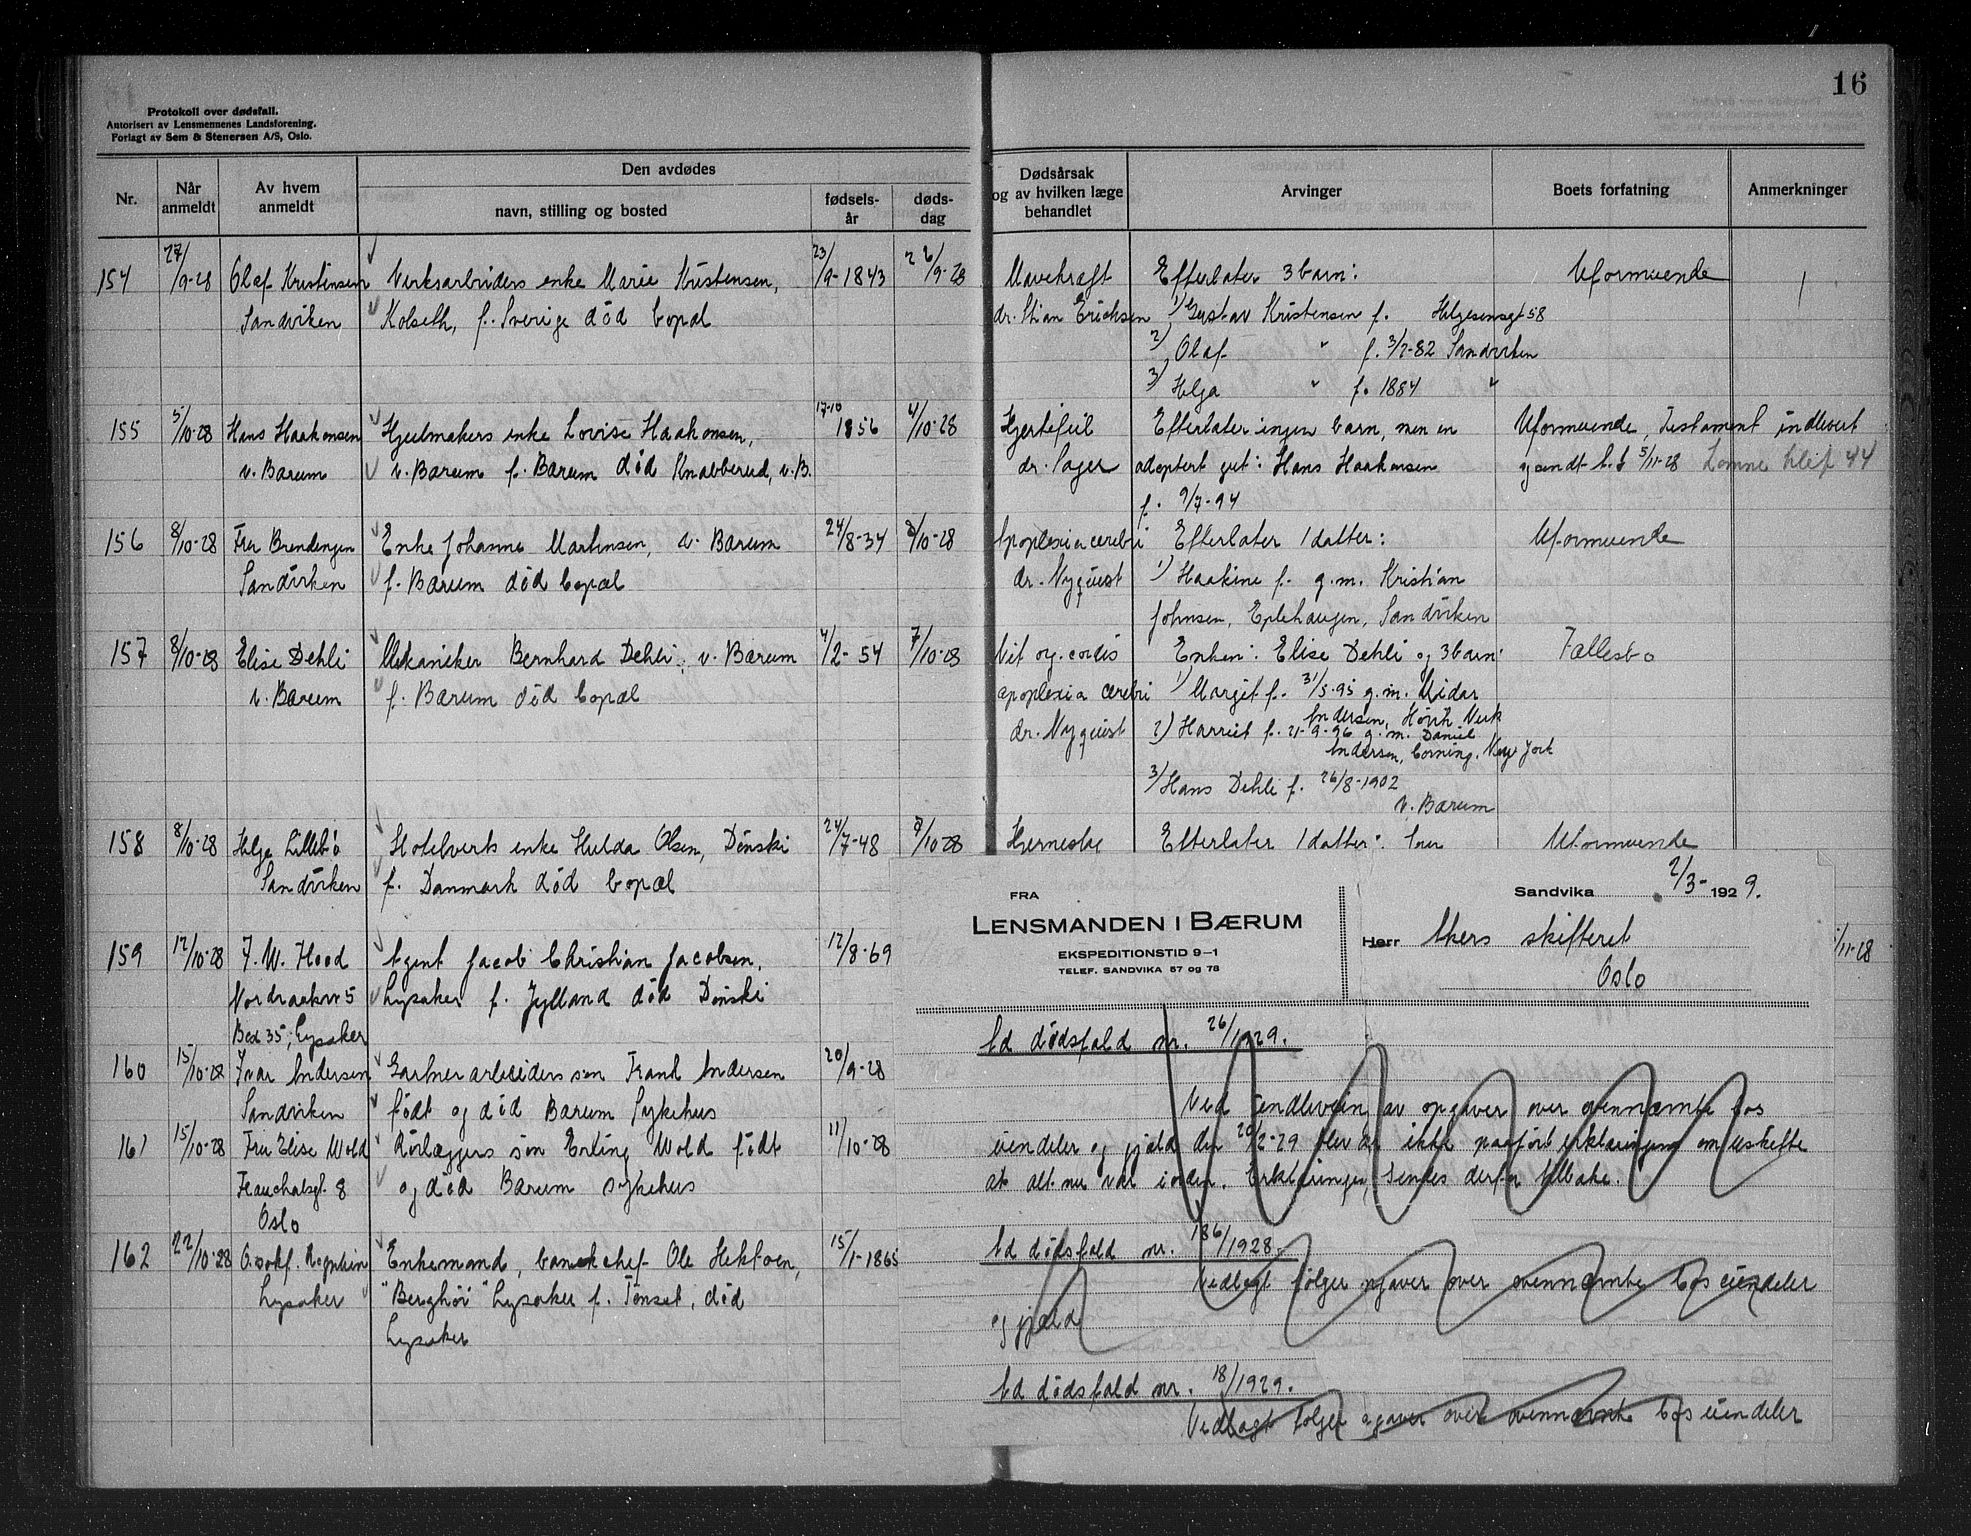 16
Protokoll over dødsfall.
Autorisert av Lensmennenes Landsforening.
Forlagt av Sem & Stenersen A/S, Oslo.
Nr.
Når anmeldt
Av hvem anmeldt
Den avdødes
navn, stilling og bosted
fødsels-år
døds-dag
Dødsårsak og av hvilken læge behandlet
Arvinger
Boets forfatning
Anmerkninger
154 27/9-28 Olaf Kristensen Verksarbeiders enke Marie Kristensen, 23/9-1843 26/9-28 Mavekræft Efterlater 3 barn: Uformuende
Sandviken Kolseth, f. Sverige død bopæl dr. Stian Erichsen 1) Gustav Kristensen f. Helgesensgt 58
2) Olaf " f. 3/7-82 Sandviken
3) Helga " f. 1884 "
155 5/10-28 Hans Haakonsen Hjulmakers enke Lovise Haakonsen, 17-10 1856 4/10-28 Hjertefeil Efterlater ingen barn, men en Uformuende, Testament indlevert
v. Bærum v. Bærum f. Bærum død Knabberud, v. B. dr. Sager adoptert gut: Hans Haakonsen 5/11-28
f. 9/7-94
156 8/10-28 Fru Brendengen Enke Johanne Martinsen, v. Bærum 24/8-34 8/10-28 Apoplexia cerebri Efterlater 1 datter: Uformuende
Sandviken f. Bærum død bopæl dr. Nyquist 1) Haakine f. g.m. Kristian
Johnsen, Eplehaugen, Sandviken
157 8/10-28 Elise Dehli Mekaniker Bernhard Dehli, v. Bærum 4/2-54 7/10-28 Vit. og. cordis Enken: Elise Dehli og 3 barn: Fællesbo
v. Bærum f. Bærum død bopæl apoplexia cerebri 1) Margit f. 31/5-95 g.m. Vidar
Andersen, Høvik Verk
dr. Nyquist 2) Harriet f. 21-9-96 g.m. Daniel
Andersen, Corning, New York
3) Hans Dehli f. 26/8-1902
v. Bærum
158 8/10-28 Helga Lillebø Hotelverts enke Hulda Olsen, Dønski 24/7-48 7/10-28 Hjerneslag Efterlater 1 datter: Uformuende
Sandviken f. Danmark død bopæl
159 12/10-28 F. W. Hood Agent Jacob Christian Jacobsen, 12/8-69
Nordraaksv 5 Lysaker f. Jylland død Dønski
Box 35, Lysaker
160 15/10-28 Ivar Andersen Gartnerarbeiders søn Frank Andersen 20/9-28
Sandviken født og død Bærum Sykehus
161 15/10-28 Fru Elise Wold Rørlæggers søn Erling Wold født 11/10-28
Fauchalsgt. 8 og død Bærum sykehus
Oslo
162 22/10-28 O.sakf. Enkemand, bankchef Ole Hektoen, 15/1-1865
Lysaker "Berghøi" Lysaker f. Tønset, død
Lysaker
FRA
LENSMANDEN I BÆRUM
EKSPEDITIONSTID 9–1
TELEF. SANDVIKA 57 og 78
Sandvika 2/3- 1929.
Herr Akers skifteret
Oslo
/11-28
Ad dødsfald nr. 26/1929.
Ved indlevering av opgaver over ovennævnte bos
eiendeler og gjæld den 20/2-29 blev der ikke paaført erklæringen om uskiftte
at alt nu var i orden. Erklæringen sendes derfor tilbake.
Ad dødsfald nr. 136/1928.
Vedlagt følger opgaver over ovennævnte bos eiendeler
og gjæld
Ad dødsfald nr. 18/1929.
Vedlagt følger opgaver over ovennævnte bos eiendeler